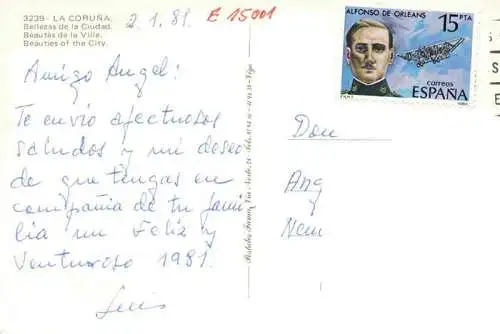 3239 - LA CORUÑA.
Bellezas de la Ciudad.
Beautés de la Ville.
Beauties of the City.
2.1.81.
E 15001
ALFONSO DE ORLEANS
15 PTA
correos
ESPAÑA
Amigo Angel:
Te envío afectuosos
saludos y mi deseo
de que tengas en
compañía de tu fami-
lia un Feliz y
Venturoso 1981.
Luis
Don
Ang
Nem